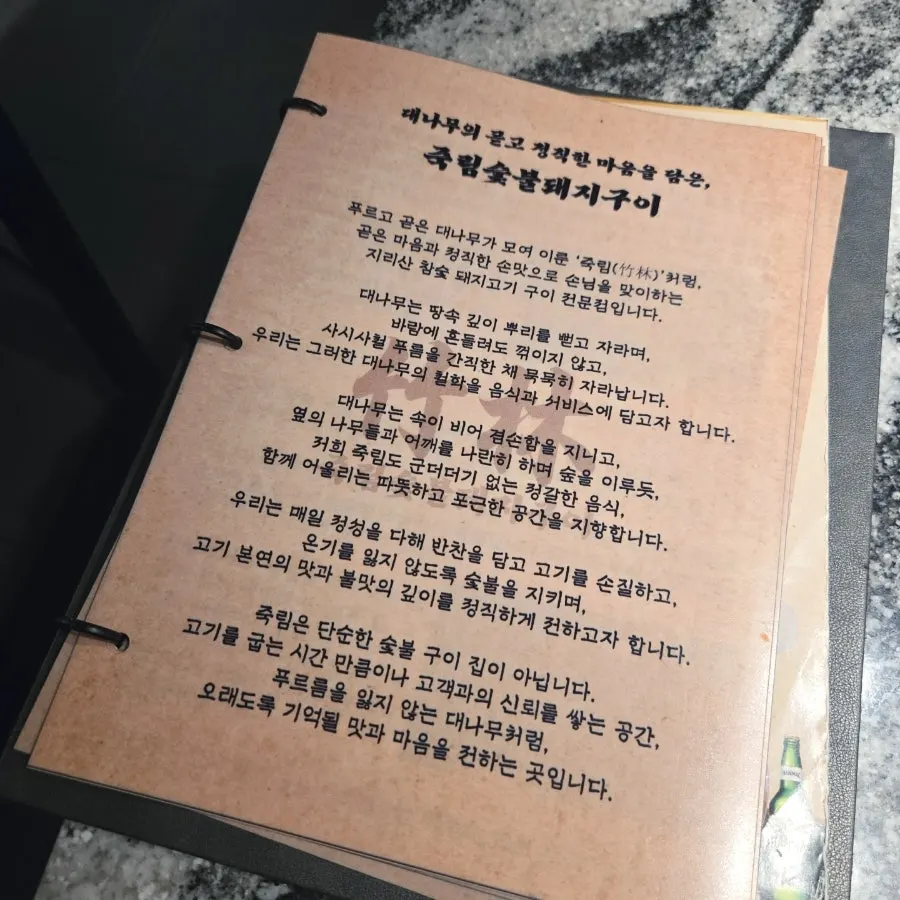 대나무의 곧고 정직한 마음을 담은,
죽림숯불돼지구이
푸르고 곧은 대나무가 모여 이룬 '죽림(竹林)'처럼,
곧은 마음과 정직한 손맛으로 손님을 맞이하는
지리산 참숯 돼지고기 구이 전문점입니다.
대나무는 땅속 깊이 뿌리를 뻗고 자라며,
바람에 흔들려도 꺾이지 않고,
사시사철 푸름을 간직한 채 묵묵히 자라납니다.
우리는 그러한 대나무의 철학을 음식과 서비스에 담고자 합니다.
竹林
대나무는 속이 비어 겸손함을 지니고,
옆의 나무들과 어깨를 나란히 하며 숲을 이루듯,
저희 죽림도 군더더기 없는 정갈한 음식,
함께 어울리는 따뜻하고 포근한 공간을 지향합니다.
우리는 매일 정성을 다해 반찬을 담고 고기를 손질하고,
온기를 잃지 않도록 숯불을 지키며,
고기 본연의 맛과 불맛의 깊이를 정직하게 전하고자 합니다.
죽림은 단순한 숯불 구이 집이 아닙니다.
고기를 굽는 시간 만큼이나 고객과의 신뢰를 쌓는 공간,
푸르름을 잃지 않는 대나무처럼,
오래도록 기억될 맛과 마음을 전하는 곳입니다.